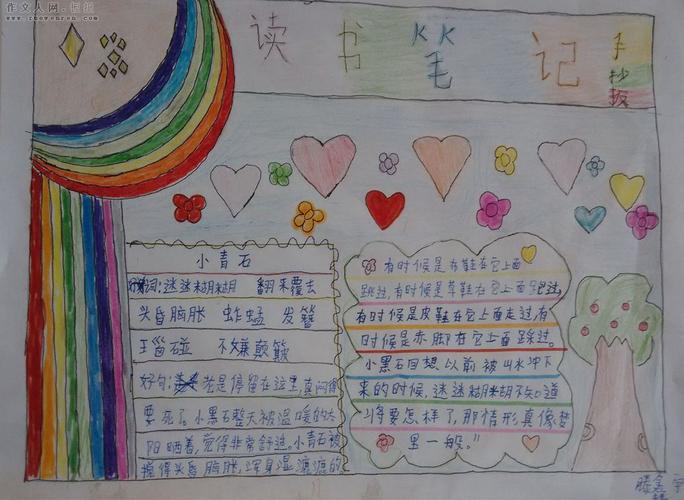 作文人网
www.zuowenren.com
读书笔记
手抄报
小青石
好词:迷迷糊糊 翻来覆去
头昏脑胀 蚱蜢 发簪
不嫌颠簸
好句: 老是停留在这里,真闷得
要死了。小黑石整天被温暖的太
阳晒着,觉得非常舒适。小青石被
撞得头昏脑胀,浑身湿漉漉的
有时候是布鞋在它上面
踩过,有时候是草鞋在它上面
有时候是皮鞋在它上面走过,有
时候是赤脚在它上面踩过。
小黑石回想以前被山水冲下
来的时候,迷迷糊糊不知道
将要怎样了,那情形真像梦
里一般。”